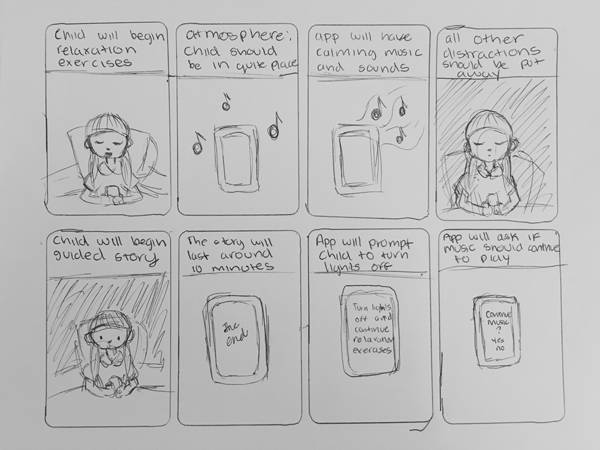 Child will begin
relaxation
exercises
atmosphere:
Child should
be in quite place
app will have
calming music
and sounds
all other
distractions
should be put
away
Child will begin
guided story
The story will
last around
10 minutes
the
end
App will prompt
Child to turn
lights off
Turn lights
off and
continue
relaxation
exercises
App will ask if
music should continue
to play
Continue
music
?
yes
no